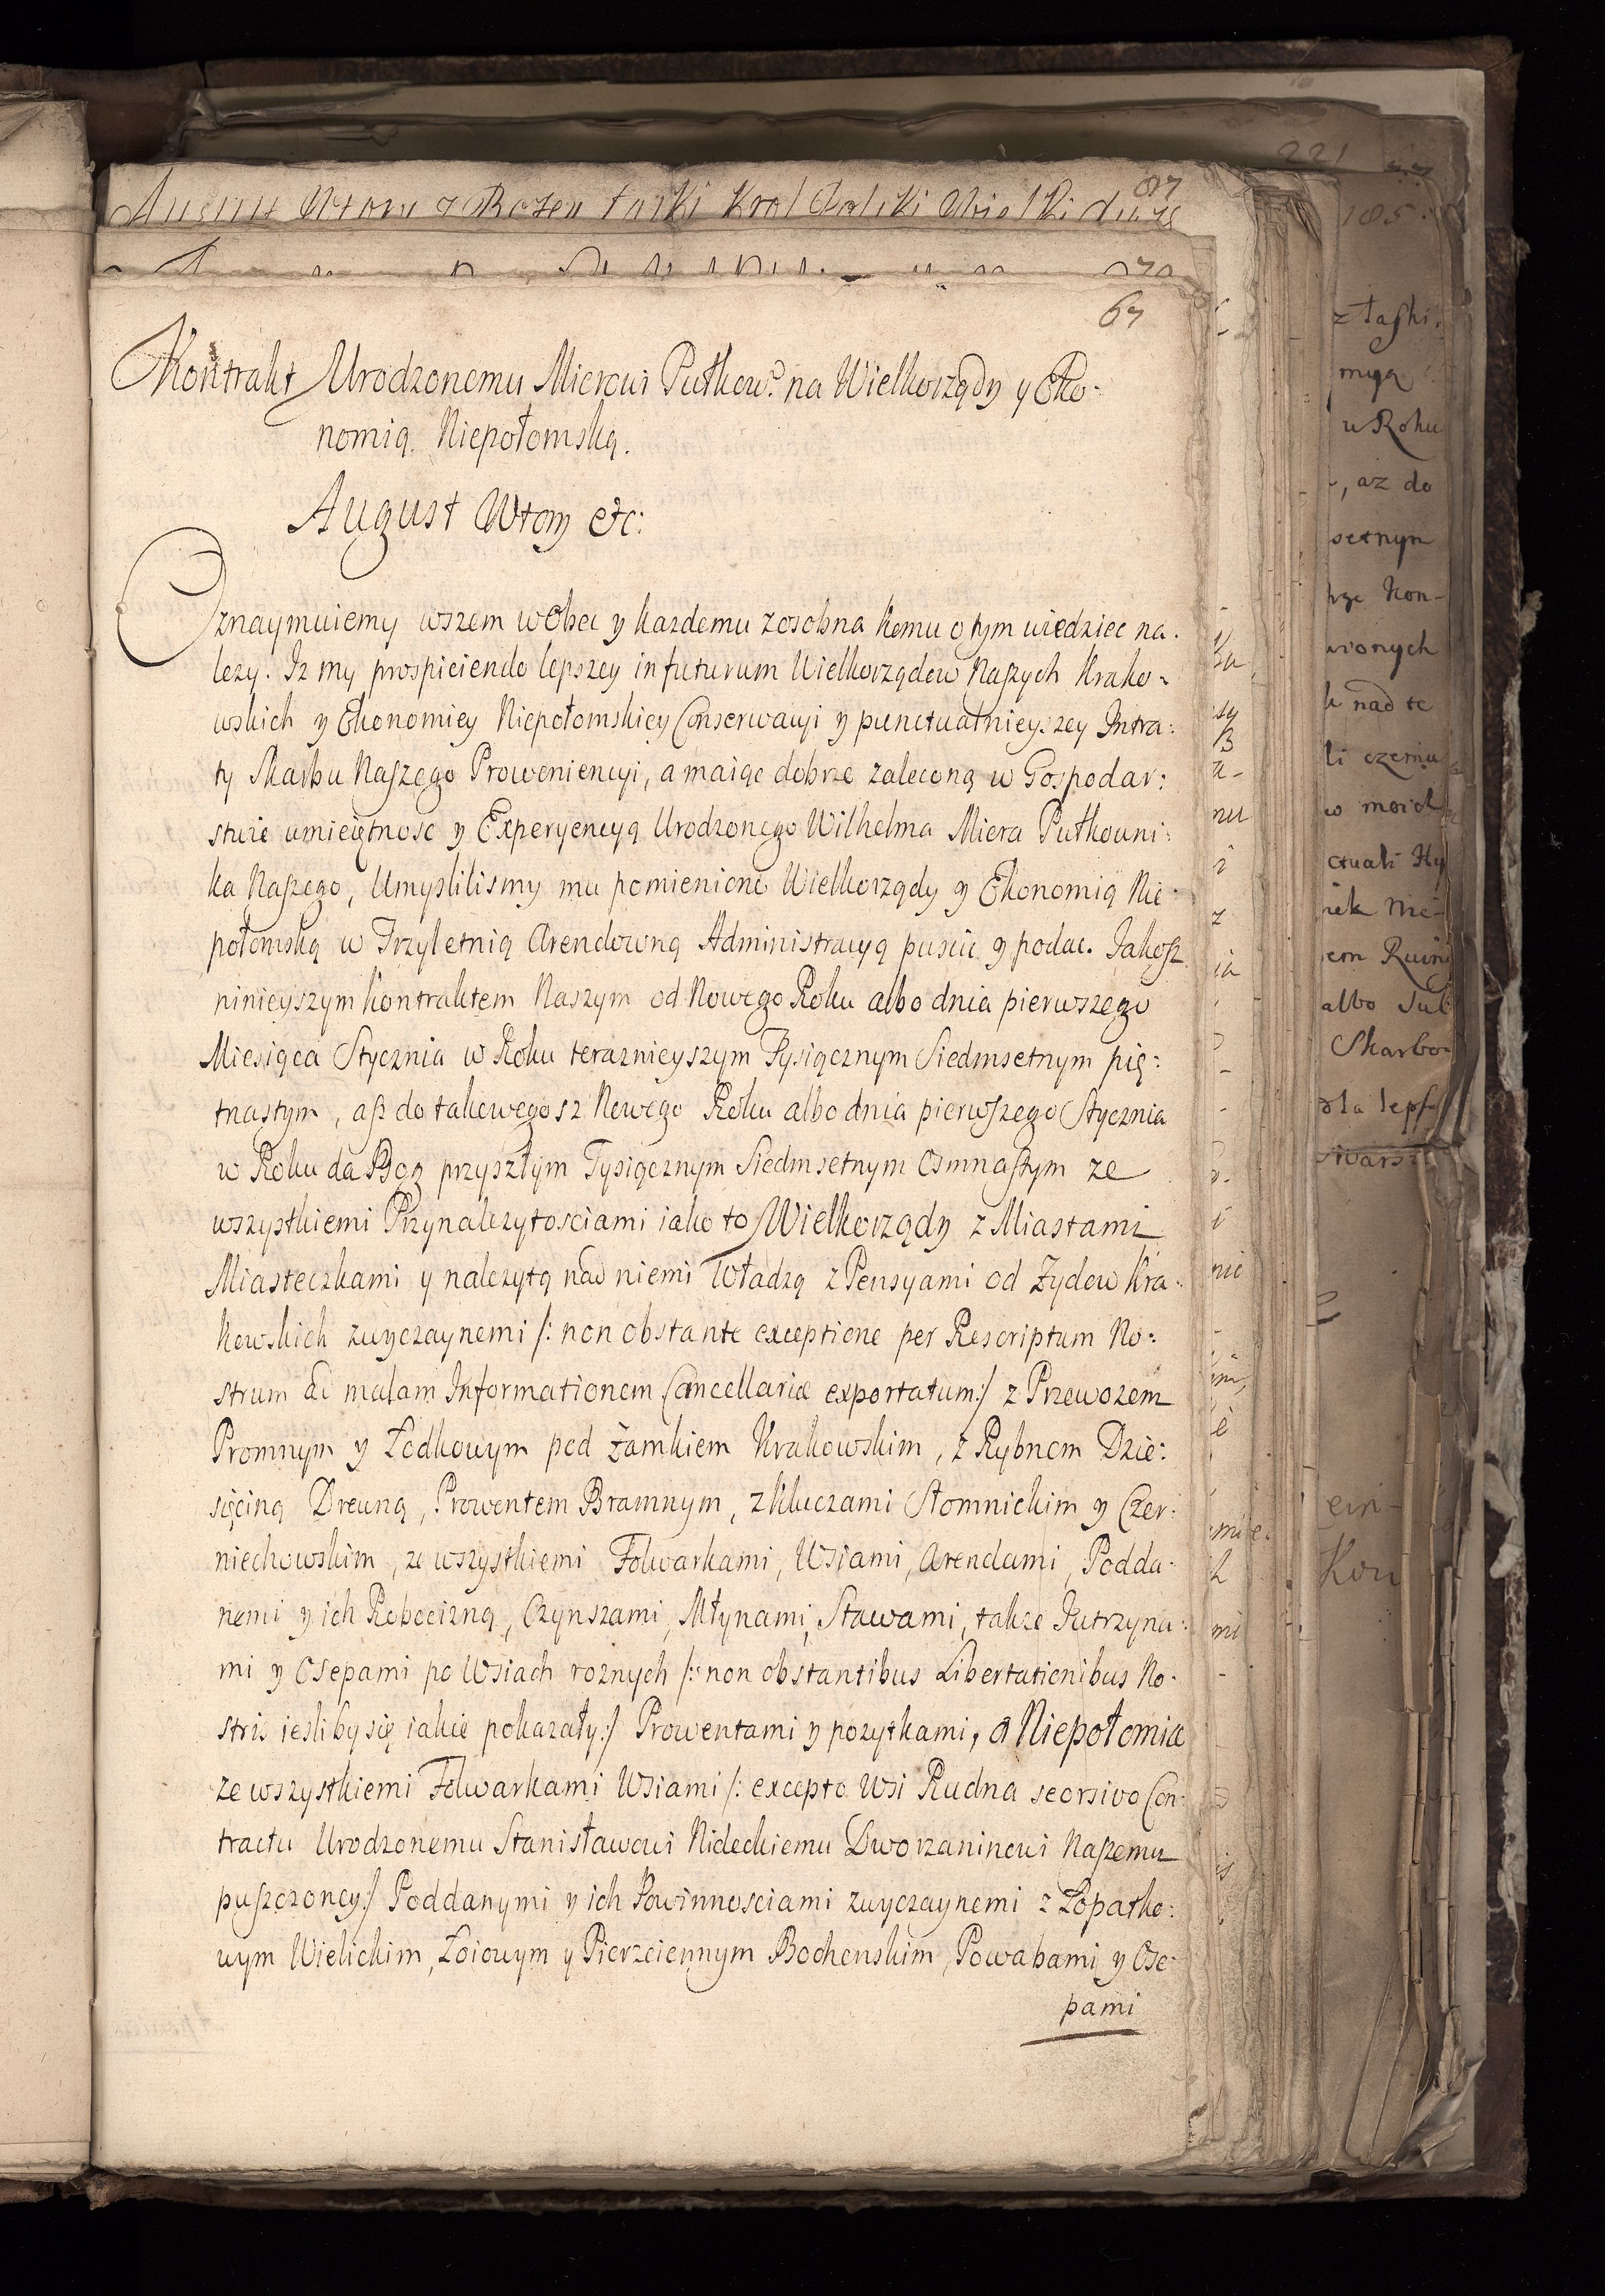 67
Kontrakt Urodzonemu Mierowi Pułkow.º na Wielkorządy y Eko-
nomią Niepołomską.
August Wtory etc:
Oznaymuiemy wszem wobec y kazdemu zosobna komu o tym wiedziec na-
lezy. Iz my prospiciendo lepszey in futurum Wielkorządow Naszych Krako-
wskich y Ekonomiey Niepołomskiey Conserwacyi y punctualnieyszey Intra:
ty Skarbu Naszego Proweniencyi, a maiąc dobrze zaleconą w Gospodar:
stwie umieiętnosc y Experyencyą Urodzonego Wilhelma Miera Pułkowni:
ka Naszego, Umyslilismy mu pomienione Wielkorządy y Ekonomią Nie-
połomską w Trzyletnią Arendowną Administracyą puscic y podac. Jakosz
ninieyszym Kontraktem Naszym od Nowego Roku albo dnia pierwszego
Miesiąca Stycznia w Roku teraznieyszym Tysiącznym Siedmsetnym pię:
tnastym, asz do takowegosz Nowego Roku albo dnia pierwszego Stycznia
w Roku da Bog przyszłym Tysiącznym Siedmsetnym Osmnastym ze
wszystkiemi Przynalezytosciami iako to Wielkorządy z Miastami
Miasteczkami y nalezytą nad niemi Władzą z Pensyami od Zydow Kra-
kowskich zwyczaynemi /: non obstante exceptione per Rescriptum No:
strum ad malam Informationem Cancellariæ exportatum:/ z Przewozem
Promnym y Łodkowym pod Zamkiem Krakowskim, z Rybnem Dzie:
sięciną Drewną, Prowentem Bramnym, z Kluczami Słomnickim y Czer:
niechowskim, ze wszystkiemi Folwarkami, Wsiami, Arendami, Podda-
nemi y ich Robocizną, Czynszami, Młynami, Stawami, takze Jutrzyna:
mi y Osepami po Wsiach roznych /: non obstantibus Libertationibus No-
stris iesliby się iakie pokazały:/ Prowentami y pozytkami, a Niepołomice
ze wszystkiemi Folwarkami Wsiami /: excepto Wsi Rudna seorsivo Con-
tractu Urodzonemu Stanisławowi Nideckiemu Dworzaninowi Naszemu
puszczoney:/ Poddanymi y ich Powinnosciami zwyczaynemi z Łopatko:
wym Wielickim, Łoiowym y Pierzciennym Bochenskim, Powabami y Ose-
pami